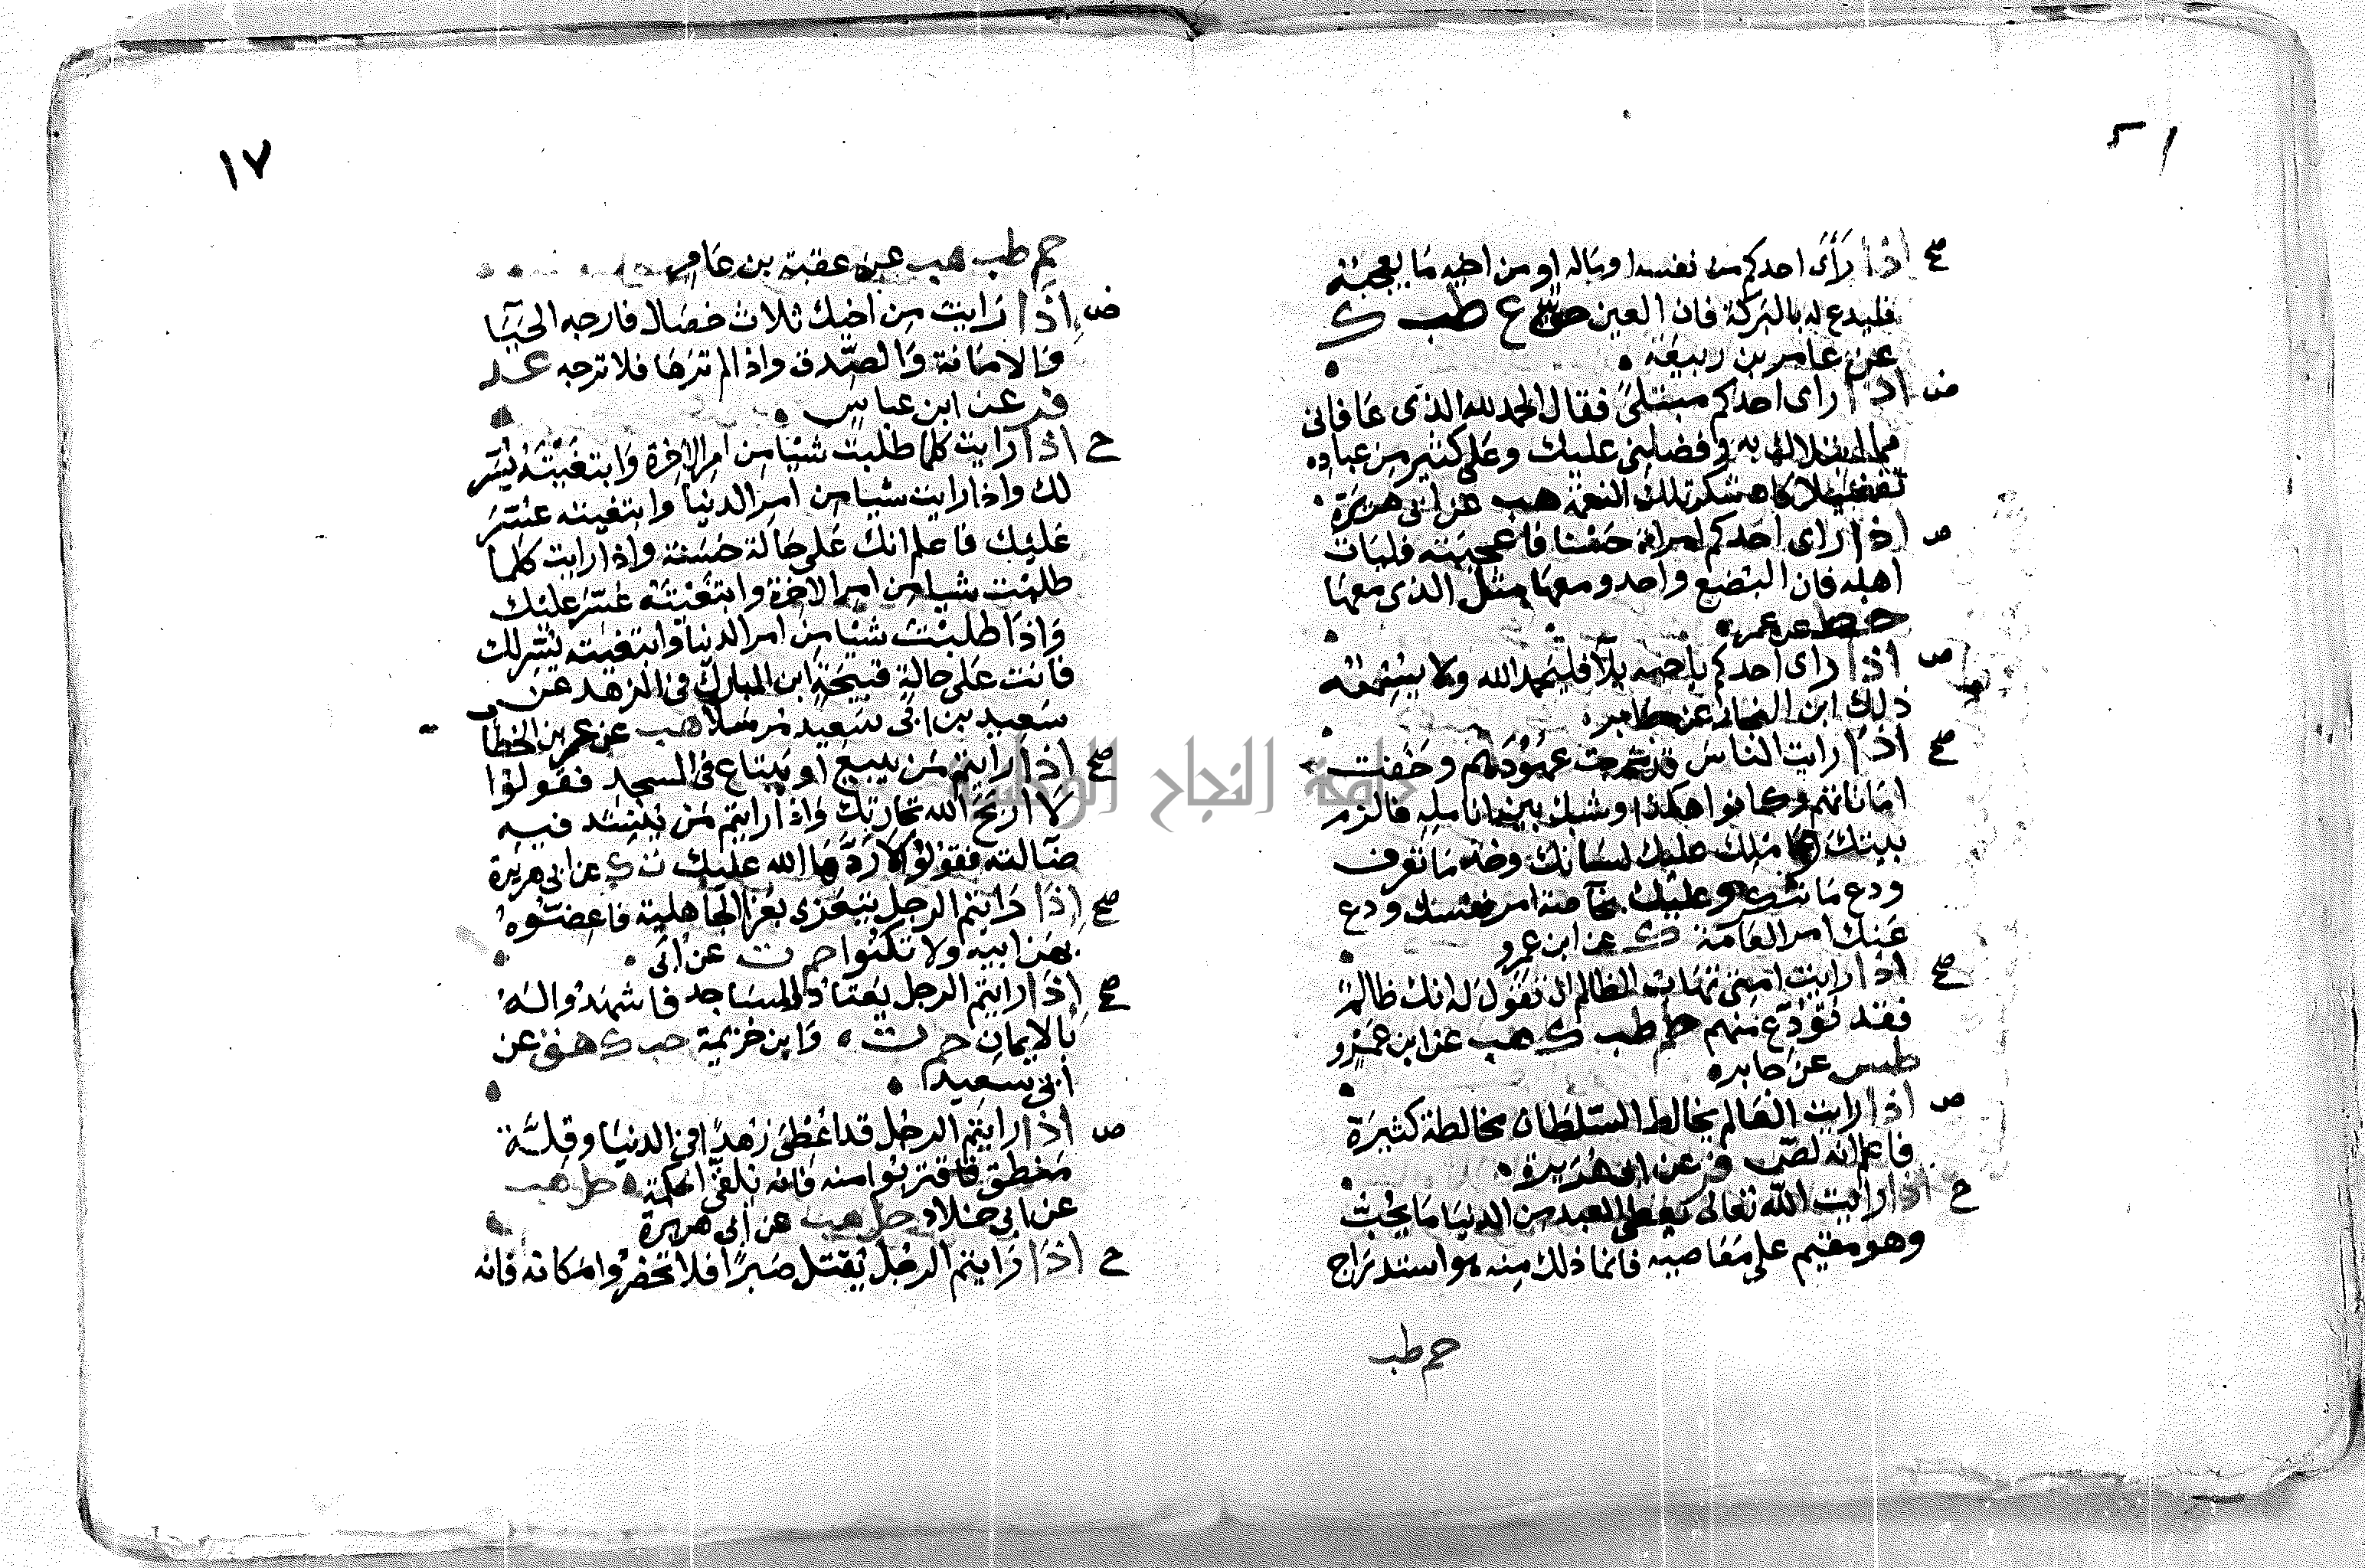 صح اذا رَأى احدكم من نفسه او ماله او من اخيه مَا يعجبه
فليدع له بالبركة فان العين حق ع طب ك
عن عامر بن ربيعة
ض اذا راى احدكم مبتلىً فقال الحمد لله الذى عَافانى
مما ابتلاك به وفضلنى عليك وعَلى كثير من عباده
تفضيلا كان شكر تلك النعمة هب عن ابى هريرة
ض اذا راى احدكم امراة حَسْنا فاعجبته فليات
اهله فان البضع واحد ومعهَا مثل الذى معهَا
خط عن عمر
ض اذا راى احدكم باخيه بلآ فليحمد الله ولا يسمعه
ذلك ابن النجار عن جابر
صح اذا رايت الناس قد مرجت عهُودهم وخفت
امَاناتهم وكانوا هكذا وشبك بين انامله فالزم
بيتك واملك عليك لسَانك وخذ مَا تعرف
ودع مَا تنكر وعليك بخاصّة امر نفسك ودع
عَنك امر العَامّة ك عن ابن عمرو
صح اذا رايت امتى تهَاب الظالم ان تقول له انك ظالم
فقد تُوُدّع منهم حم طب ك هب عن ابن عَمْرو
طس عن جَابر
ض اذا رايت العَالم يخالط السّلطان مخالطة كثيرَة
فاعلم انه لصّ فر عن ابى هُريرة
ح اذا رايت الله تعالى يُعطى العبد من الدنيَا مَا يُحبّ
وهو مقيم على مَعَاصيه فانما ذلك مِنه استدرَاج
حم طب
١٧
حم طب هب عن عقبة بن عَامر
ض اذَا رَايت من اخيك ثلاث خصَال فارجه الحيَا
وَالامَانة وَالصّدق واذا لم تَرهَا فلا ترجه عد
فر عن ابن عباس
ح اذا رَايت كلما طلبت شيًا من امر الاخرة وَابتغَيته يُسّر
لك واذا رايت شيا من امر الدنيا وابتغيته عُسّرَ
عَليك فاعلم انك عَلى حَالة حَسَنة واذا رايت كلما
طلبْت شيا من امر الاخرة وابتغيْته عُسّرَ عليك
وَاذَا طلبْت شيًا من امر الدنيَا وابتغيته يُسّر لك
فانت عَلى حالة قبيحَة ابن المبارك فى الزهد عن
سَعيد بن ابى سَعيد مرسَلا هب عن عمر بن الخطاب
صح اذا رَايتم مَن يبيع او يَبتاع فى المسجد فقولوا
لا اربَحَ الله تجارتك وَاذا رايتم مَن ينشد فيه
ضالته فقولوُا لا رَدّهَا الله عليك ت ك عن ابى هريرة
صح اذَا رَايتم الرجل يتعَزى بعَزا الجاهلية فاعضّوُه
بهَن ابيه ولا تكنُوا حم ت عن اُبَى
صح اذَا رايتم الرجل يَعتَاد المسَاجد فاشهدُوا لهُ
بالايمَان حم ت وَابن خزيمة حب ك هق عن
ابى سَعيد
ض اذا رايتم الرجُل قد اعْطِىَ زهدًا فى الدنيَا وقلّة
مَنطق فاقتربُوا منه فانه يلقّى الحكمَة حل هب
عن ابى خلاد حل هب عن ابى هريرة
ح اذَا رَايتم الرجُل يُقتَل صَبرًا فلا تحضرُوا مَكانه فانه